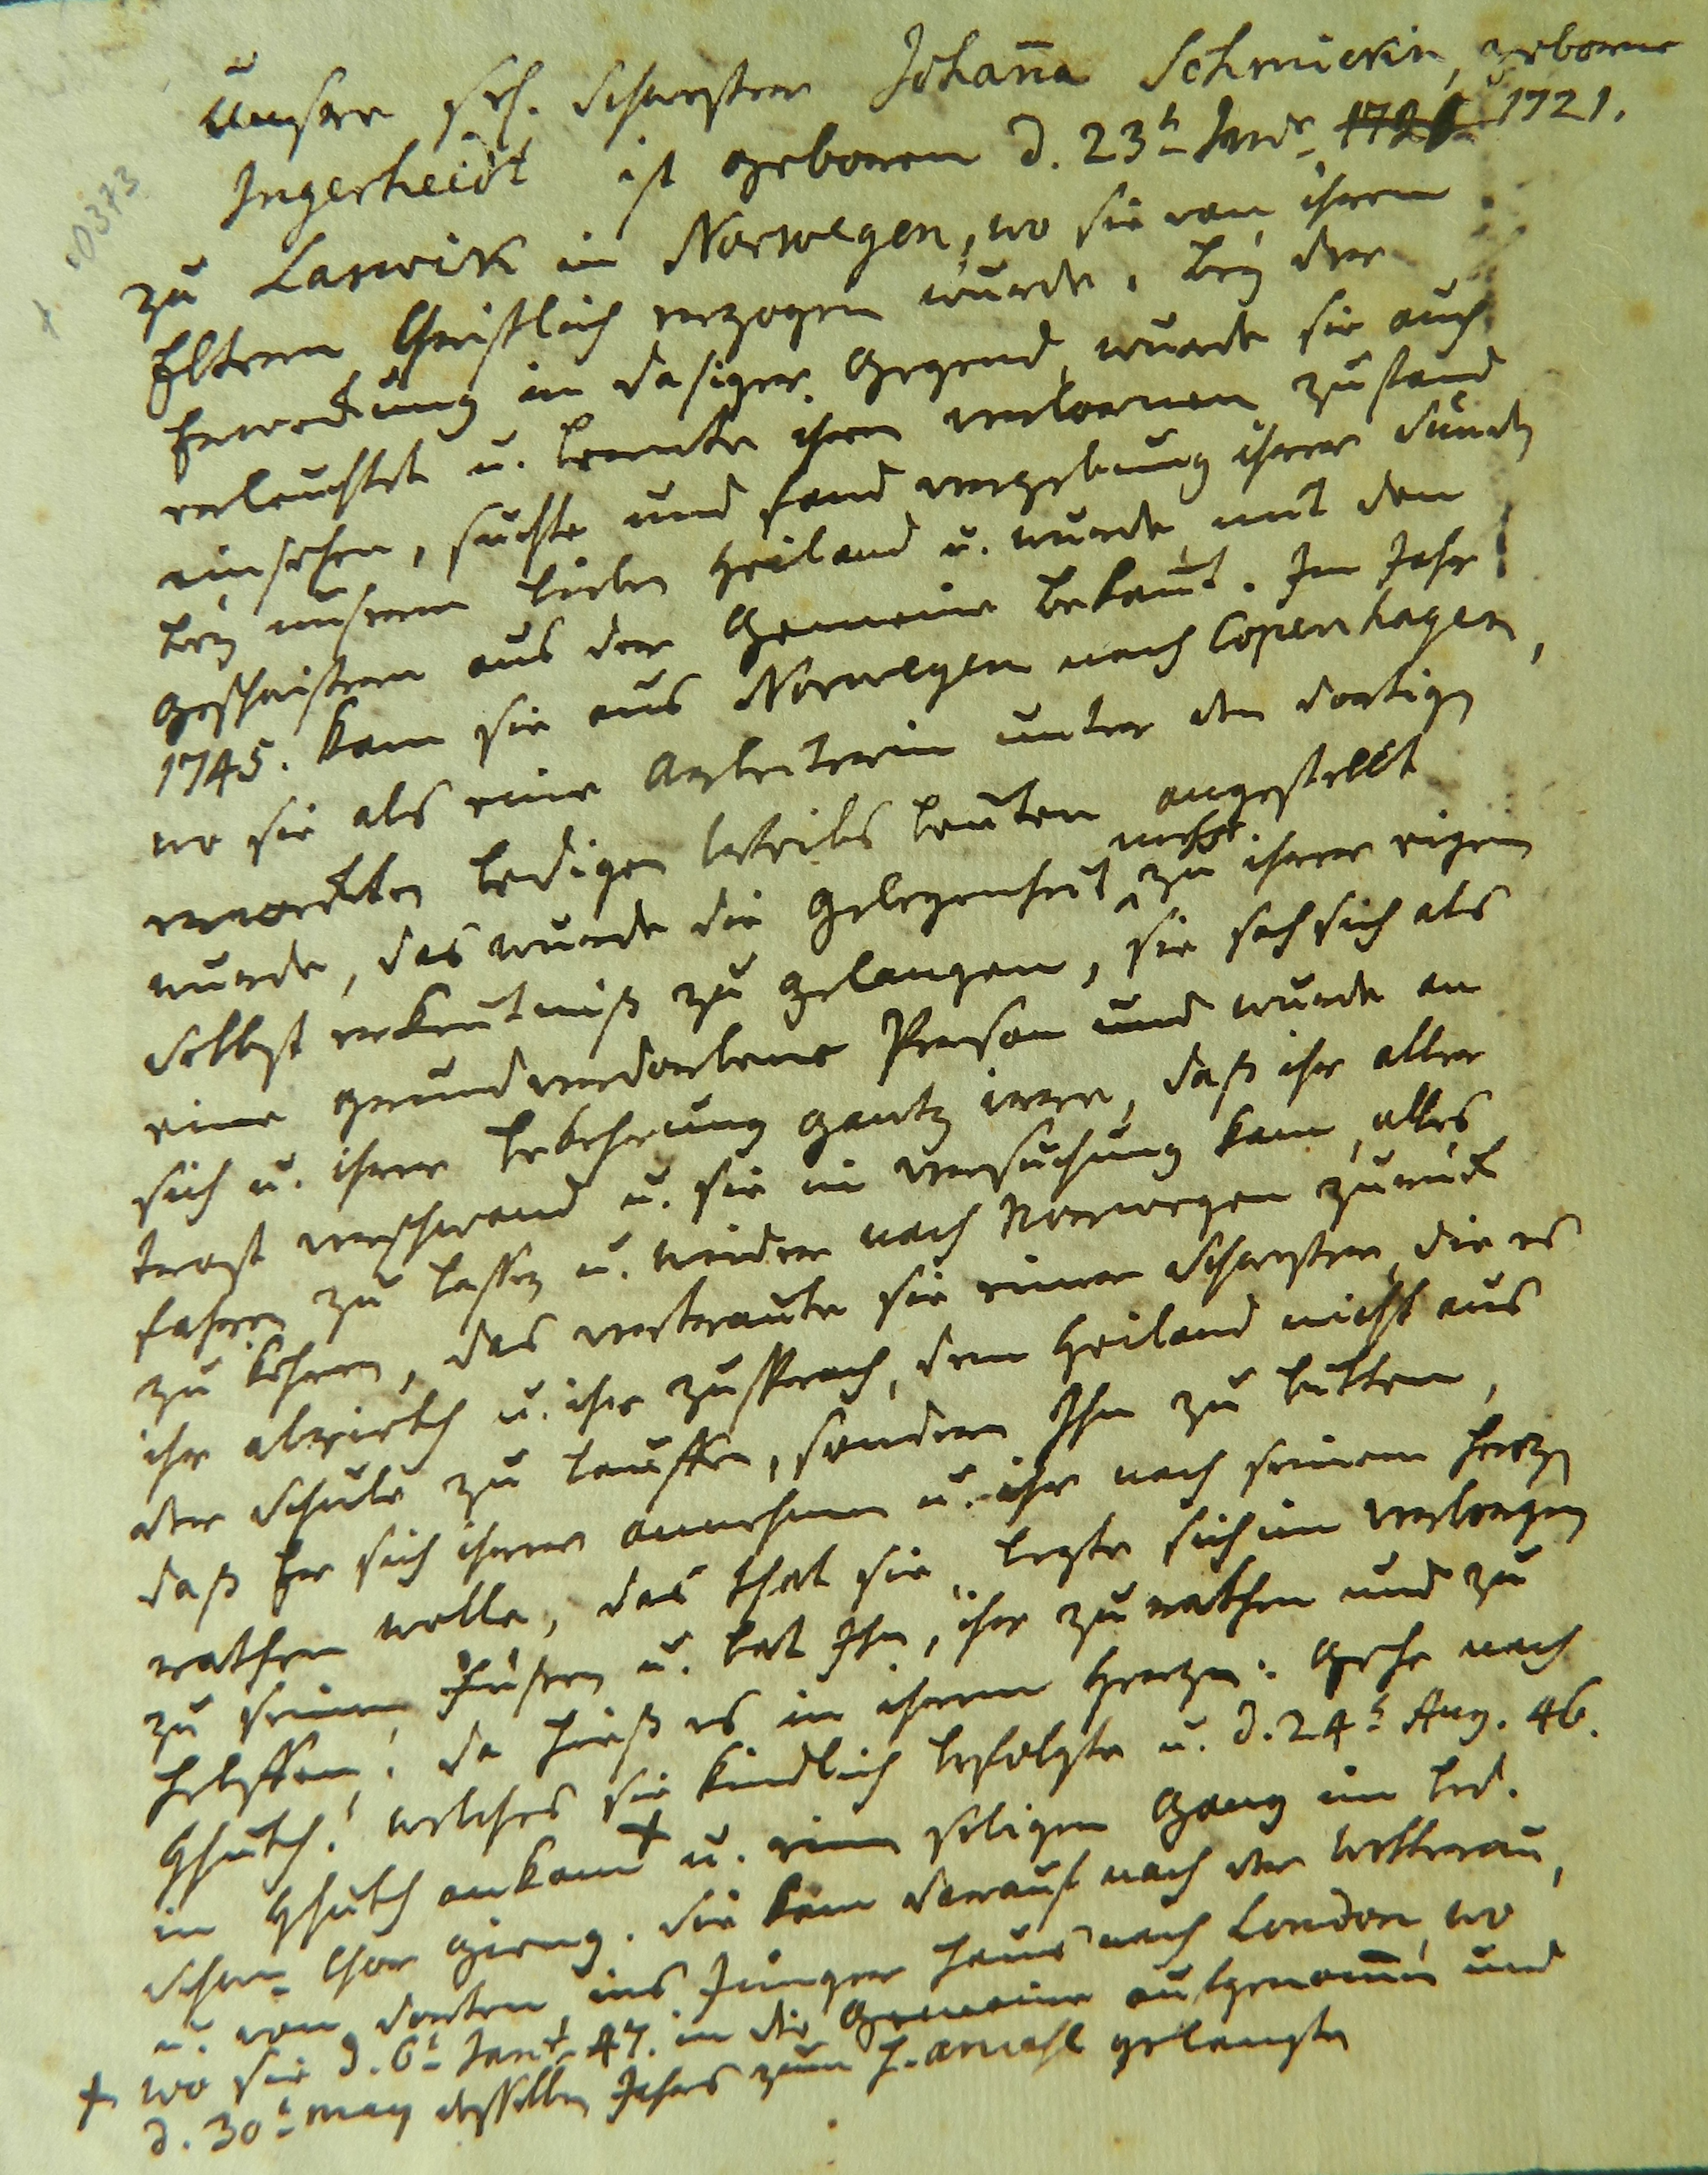 Unsre sel. Schwester Johanna Schmickin, geborne
Ingerheidt ist geboren d. 23t 1721 1721.
zu Larwick in Norwegen, wo sie von ihren
Eltern Christlich erzogen wurde. Bey der
Erweckung in dasiger Gegend wurde sie auch
erleuchtet u. lernte ihren verlornen Zustand
einsehen, suchte und fand vergebung ihrer Sünden
bey unserm lieben Heiland u. wurde mit den
Geschwistern aus der Gemeine bekannt. Im Jahr
1745. kam sie aus Norwegen nach Copenhagen,
wo sie als eine Arbeiterin unter den dortigen
erweckten ledigen Weibs Leuten angestellt
wurde, das wurde die Gelegenheit mehr zu ihrer eigen
Selbst erkentniß zu gelangen, sie sah sich als
eine grundverdorbene Person und wurde an
sich u. ihrer bekehrung gantz irre, daß ihr aller
trost verschwand u. sie in versuchung kam, alles
fahren zu lassen u. wieder nach Norwegen zurück
zu kehren, das vertraute sie einer Schwester, die es
ihr abrieth u. ihr zusprach, dem Heiland nicht aus
der Schule zu lauffen, sondern Ihn zu bitten,
daß Er sich ihrer annehmen u. ihr nach seinem Hertzen
rathen wolle, das that sie, legte sich im verborgen
zu seinen Füßen u. bat Ihn, ihr zu rathen und zu
helffen! da hieß es in ihrem Hertzen: Gehe nach
Hhuth! welches sie kindlich befolgte u. d. 24t Aug. 46.
in Hhuth ankam + u. einen seligen Gang im led.
Schw. Chor gieng. Sie kam darauf nach der Wetterau,
u. von dorten ins Jünger Haus nach London, wo
+ wo sie d. 6t Jan. 47. in die Gemeine aufgenommen und
d. 30t may desselben Jahrs zum h. amahl gelangte
10373
+